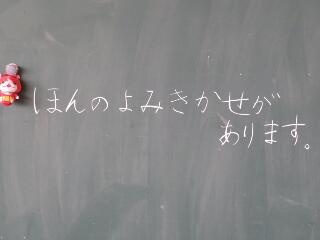 ほんのよみきかせが
あります。